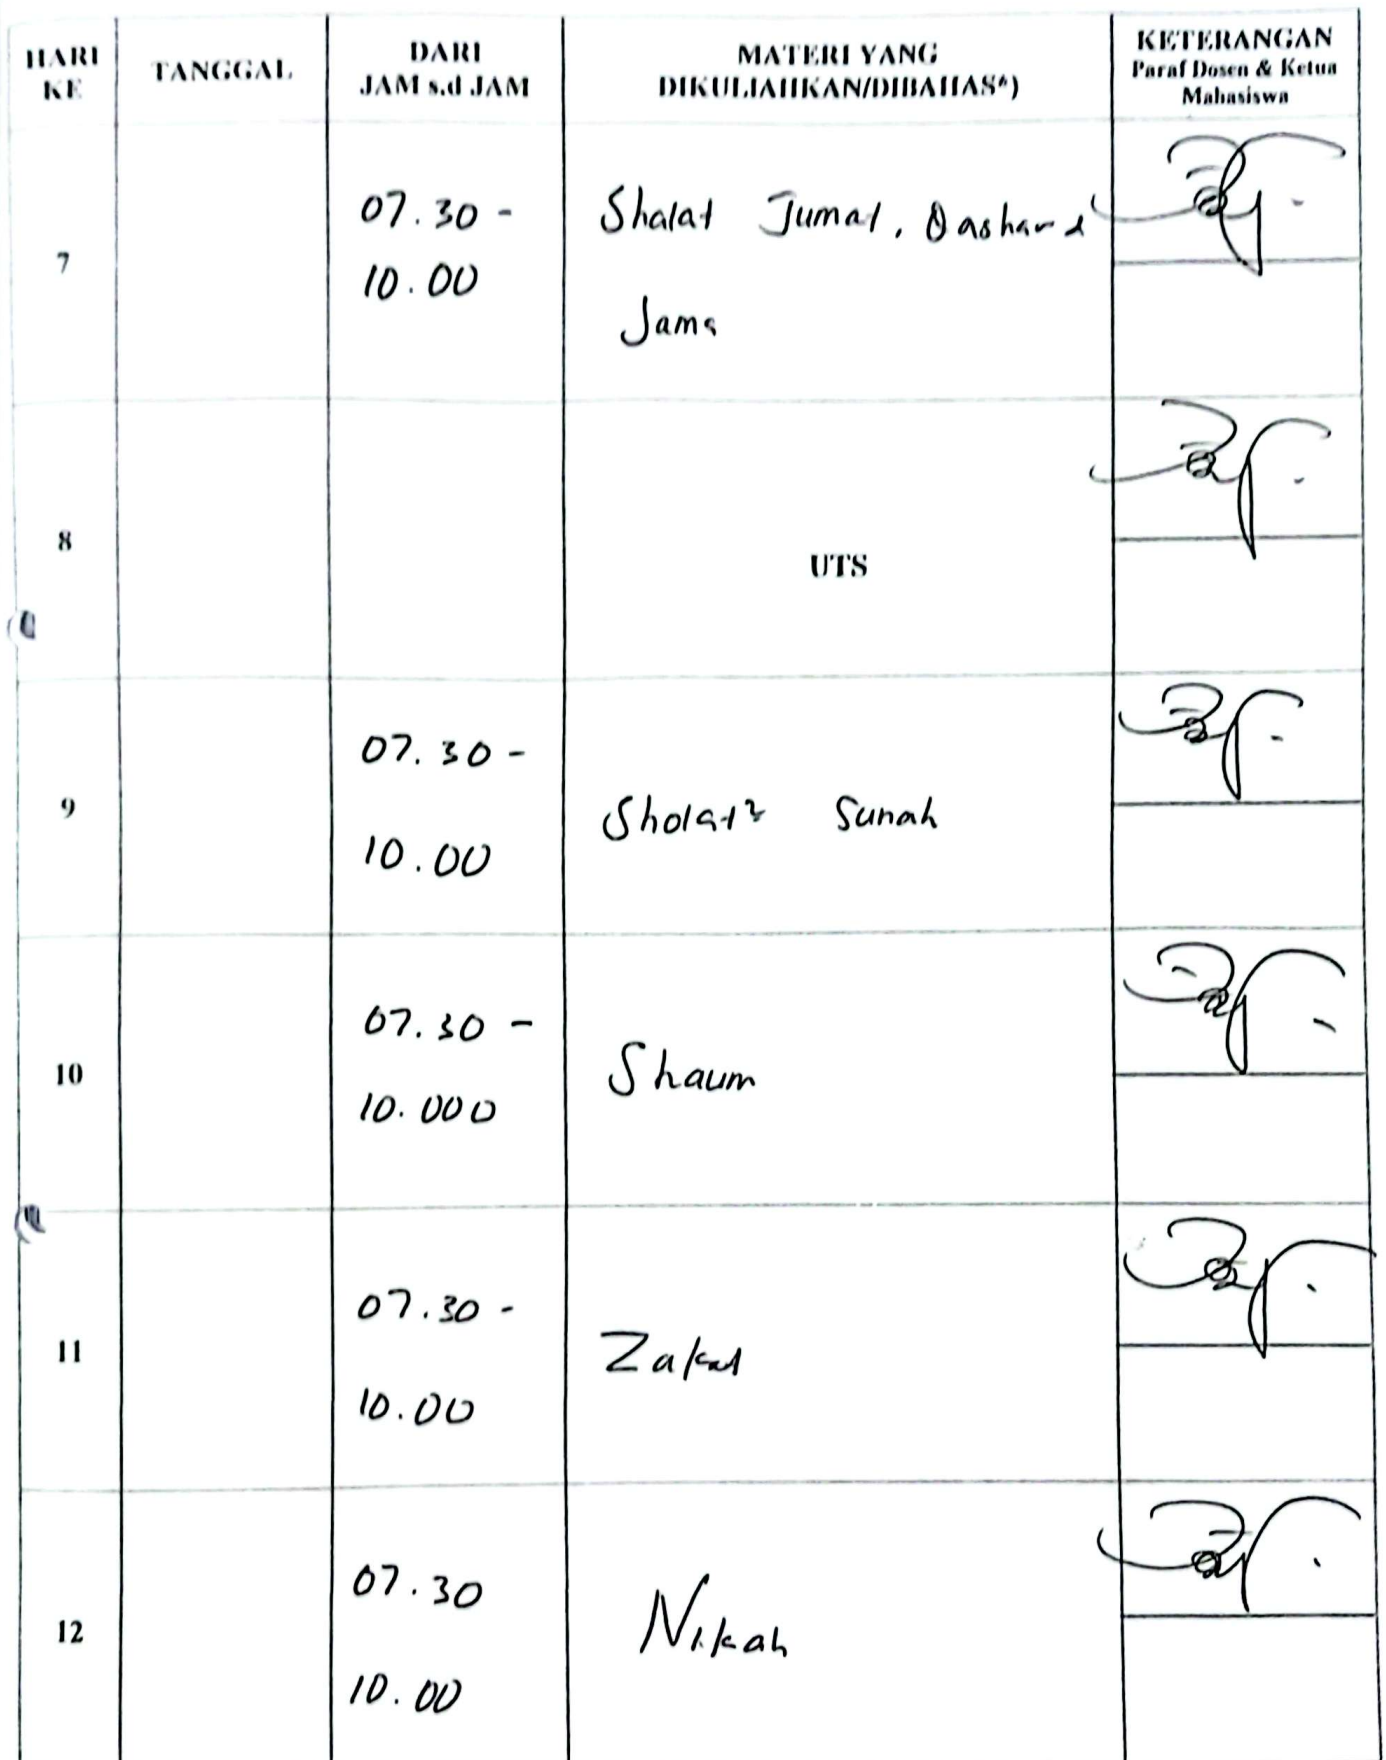 HARI KE
TANGGAL
DARI JAM s.d JAM
MATERI YANG DIKULIAHKAN/DIBAHAS*)
KETERANGAN
Paraf Dosen & Ketua Mahasiswa
7
07.30 -
10.00
Shalat Jumat,
Jama
8
UTS
9
07.30 -
10.00
Sholat² Sunah
10
07.30 -
10.000
Shaum
11
07.30 -
10.00
Zakat
12
07.30
10.00
Nikah